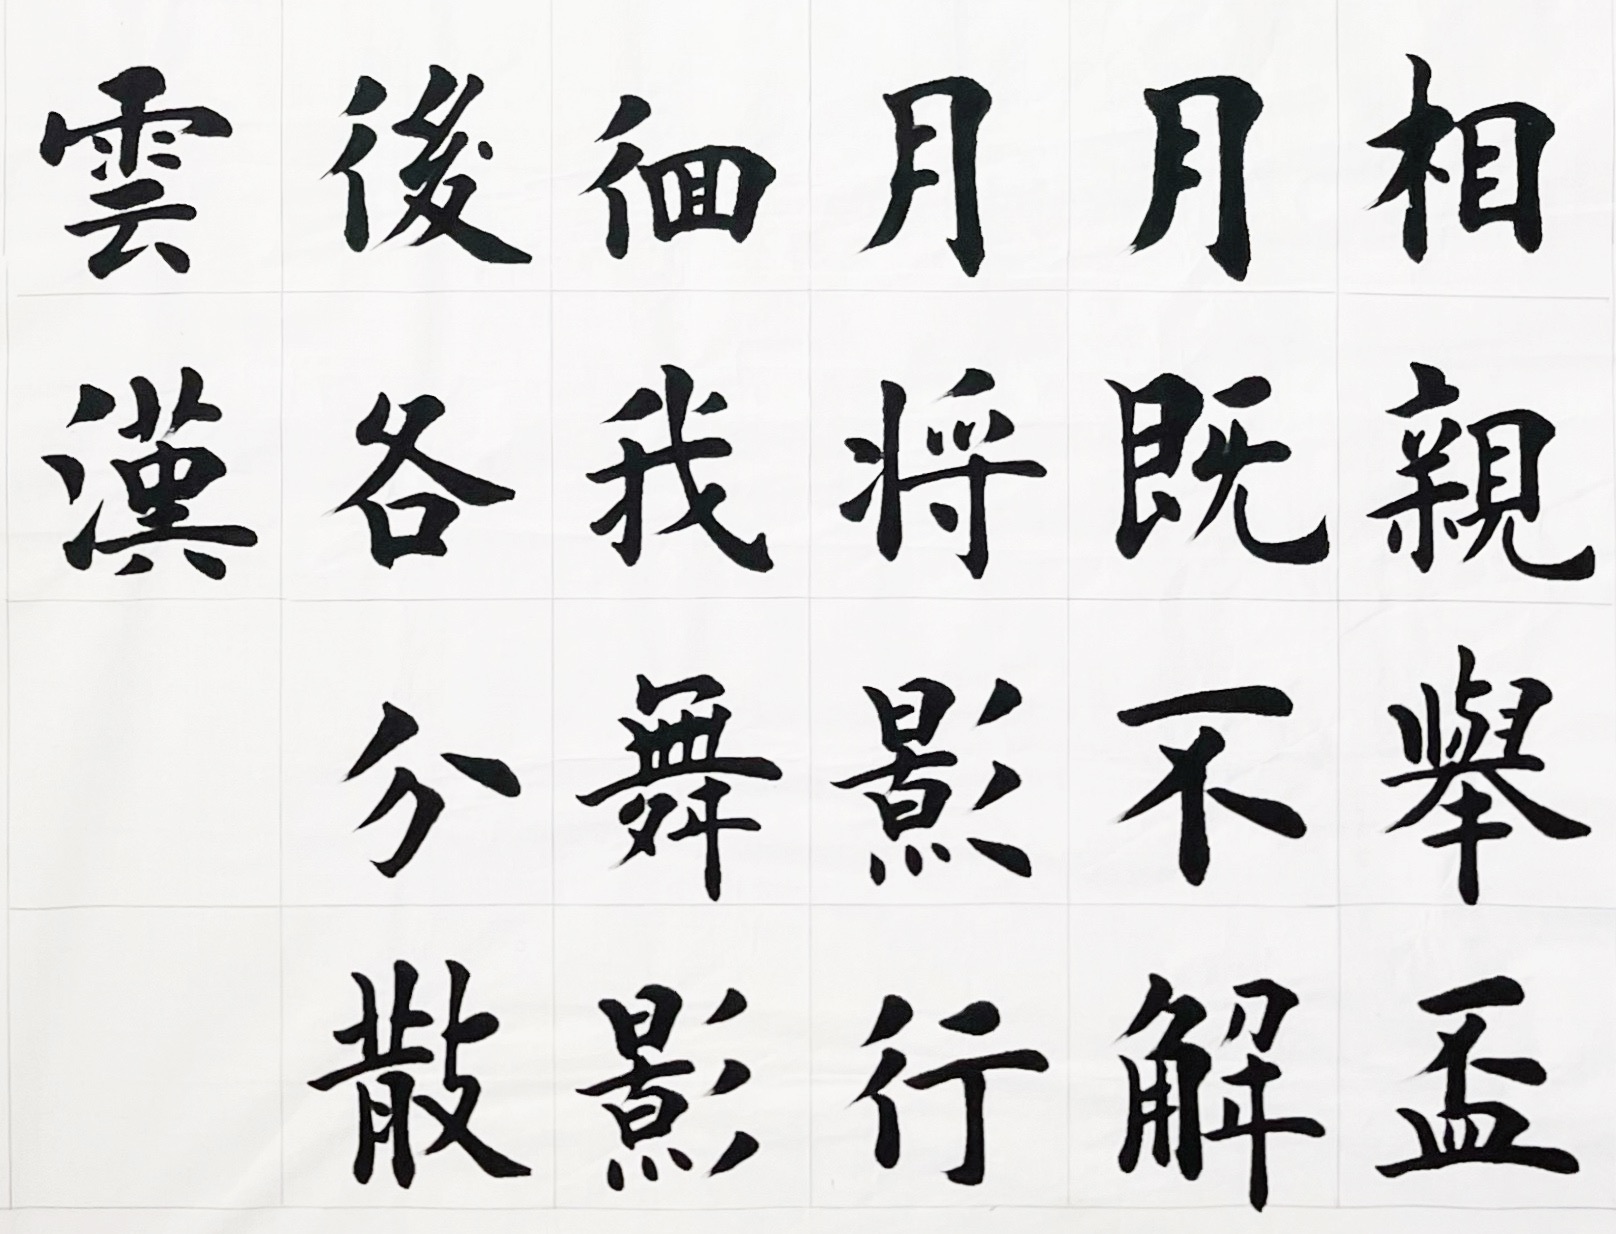 相親舉盃
月既不解
月将影行
徊我舞影
後各分散
雲漢